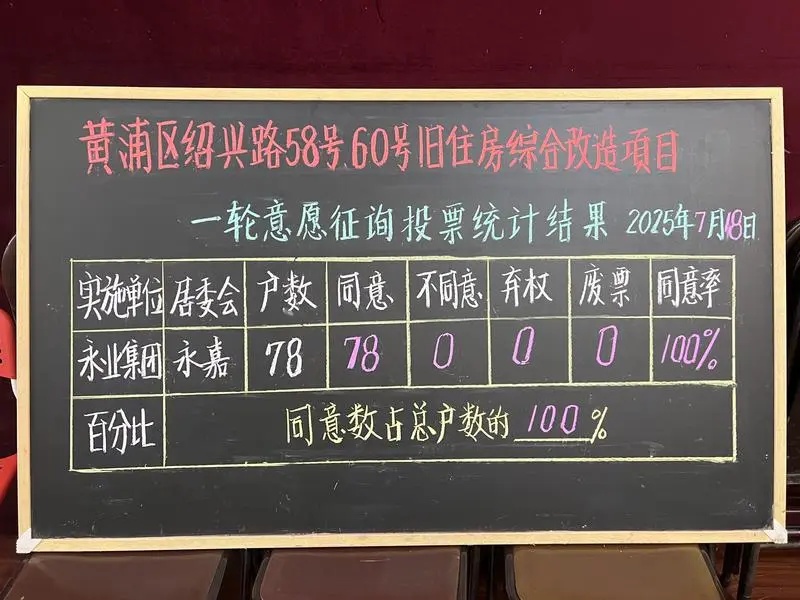 黄浦区绍兴路58号、60号旧住房综合改造项目
一轮意愿征询投票统计结果 2025年7月18日
实施单位 居委会 户数 同意 不同意 弃权 废票 同意率
永业集团 永嘉 78 78 0 0 0 100%
百分比 同意数占总户数的 100 %